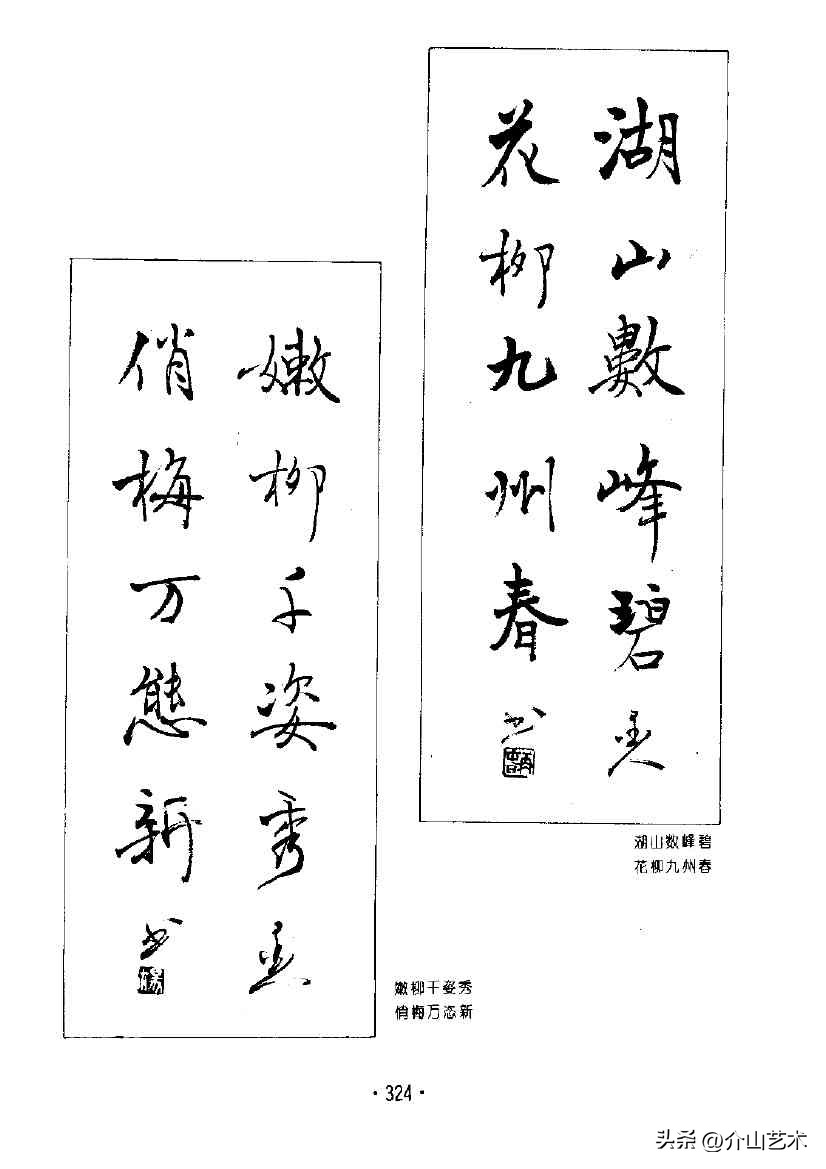 湖山數峰碧
花柳九州春
书
湖山数峰碧
花柳九州春
嫩柳千姿秀
俏梅万態新
书
嫩柳千姿秀
俏梅万态新
·324·
头条 @介山艺术